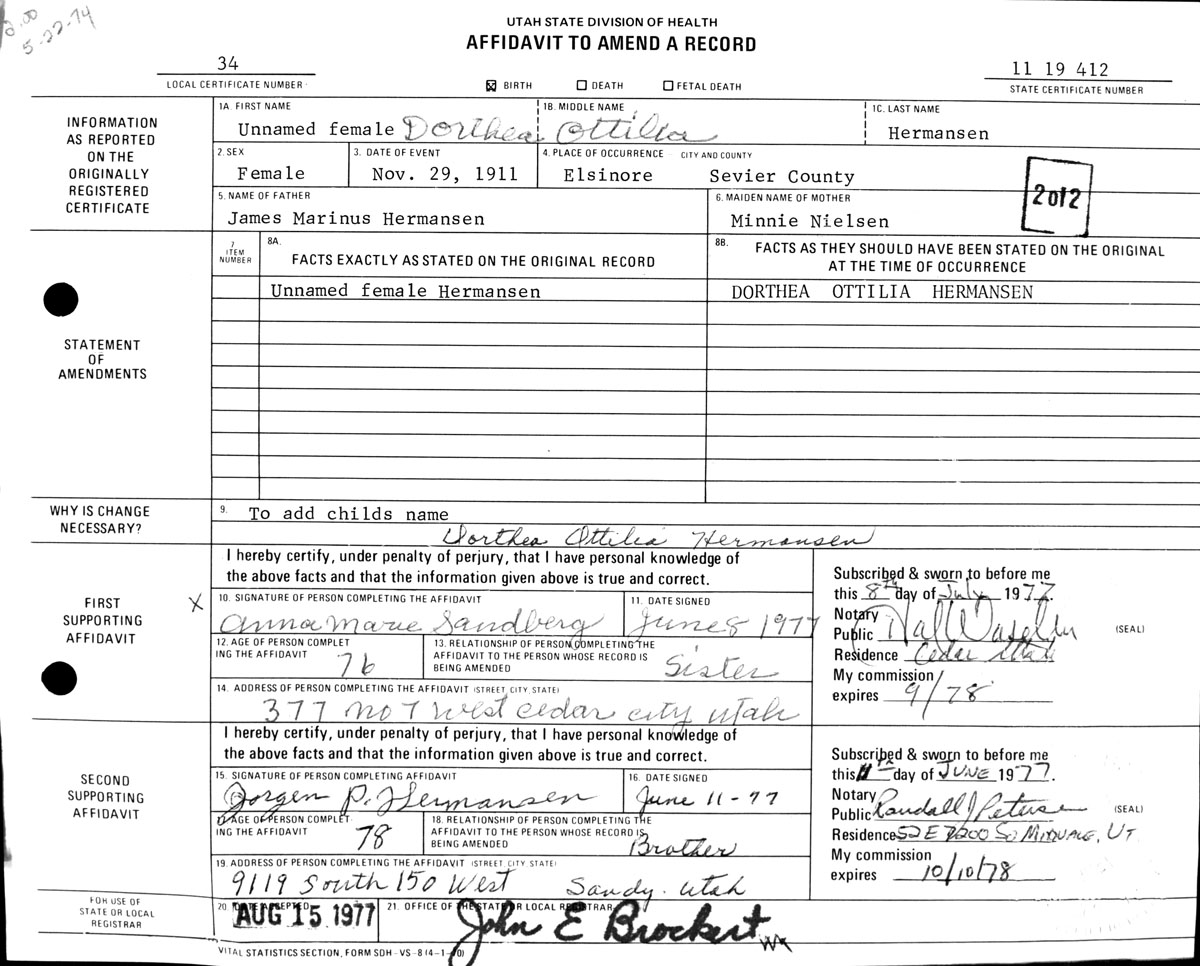 2.00
5-22-74
UTAH STATE DIVISION OF HEALTH
AFFIDAVIT TO AMEND A RECORD
34
LOCAL CERTIFICATE NUMBER
☒ BIRTH ☐ DEATH ☐ FETAL DEATH
11 19 412
STATE CERTIFICATE NUMBER
INFORMATION
AS REPORTED
ON THE
ORIGINALLY
REGISTERED
CERTIFICATE
1A. FIRST NAME 1B. MIDDLE NAME 1C. LAST NAME
Unnamed female Dorthea Ottilia Hermansen
2. SEX 3. DATE OF EVENT 4. PLACE OF OCCURRENCE CITY AND COUNTY
Female Nov. 29, 1911 Elsinore Sevier County
2 of 2
5. NAME OF FATHER 6. MAIDEN NAME OF MOTHER
James Marinus Hermansen Minnie Nielsen
STATEMENT
OF
AMENDMENTS
7
ITEM
NUMBER
8A.
FACTS EXACTLY AS STATED ON THE ORIGINAL RECORD
8B. FACTS AS THEY SHOULD HAVE BEEN STATED ON THE ORIGINAL
AT THE TIME OF OCCURRENCE
Unnamed female Hermansen DORTHEA OTTILIA HERMANSEN
WHY IS CHANGE
NECESSARY?
9. To add childs name
Dorthea Ottilia Hermansen
FIRST
SUPPORTING
AFFIDAVIT
X
I hereby certify, under penalty of perjury, that I have personal knowledge of
the above facts and that the information given above is true and correct.
10. SIGNATURE OF PERSON COMPLETING THE AFFIDAVIT 11. DATE SIGNED
Anna Marie Sandberg June 8 1977
12. AGE OF PERSON COMPLET
ING THE AFFIDAVIT
76
13. RELATIONSHIP OF PERSON COMPLETING THE
AFFIDAVIT TO THE PERSON WHOSE RECORD IS
BEING AMENDED
Sister
14. ADDRESS OF PERSON COMPLETING THE AFFIDAVIT (STREET, CITY, STATE)
377 no 7 west cedar city utah
Subscribed & sworn to before me
this 8th day of July 1977
Notary
Public
(SEAL)
Residence Cedar Utah
My commission
expires 9/78
SECOND
SUPPORTING
AFFIDAVIT
I hereby certify, under penalty of perjury, that I have personal knowledge of
the above facts and that the information given above is true and correct.
15. SIGNATURE OF PERSON COMPLETING AFFIDAVIT 16. DATE SIGNED
Jorgen P. Hermansen June 11-77
17. AGE OF PERSON COMPLET
ING THE AFFIDAVIT
78
18. RELATIONSHIP OF PERSON COMPLETING THE
AFFIDAVIT TO THE PERSON WHOSE RECORD IS
BEING AMENDED
Brother
19. ADDRESS OF PERSON COMPLETING THE AFFIDAVIT (STREET, CITY, STATE)
9119 South 150 West Sandy. Utah
Subscribed & sworn to before me
this 11th day of JUNE 1977.
Notary
Public Randall J Petersen
(SEAL)
Residence 52 E 7200 So MIDVALE, UT
My commission
expires 10/10/78
FOR USE OF
STATE OR LOCAL
REGISTRAR
20. DATE ACCEPTED 21. OFFICE OF THE STATE OR LOCAL REGISTRAR
AUG 15 1977 John E Brockert
VITAL STATISTICS SECTION, FORM SDH-VS-8 (4-1-70)